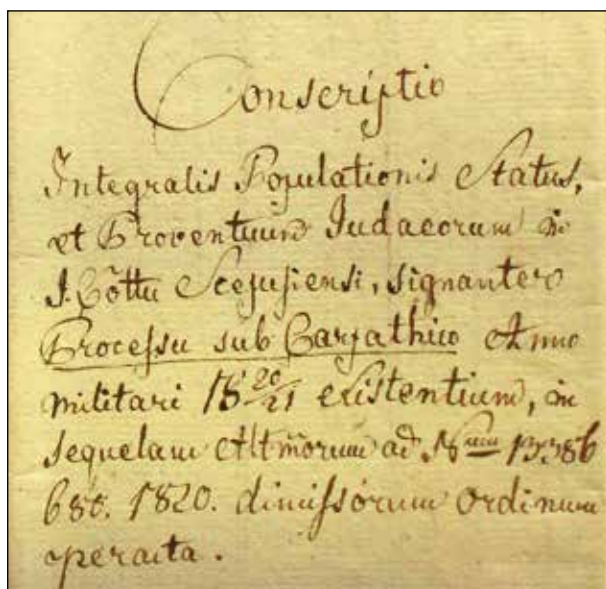 Conscriptio
Integralis Populationis Status,
et Proventuum Judaeorum in
I. Cottu Scepusiensi, signanter
Processu sub Carpathico Anno
militari 18 20/21 existentium, in
sequelam Altmorum ad Num 13386
1820. dimissorum ordinum
peracta.